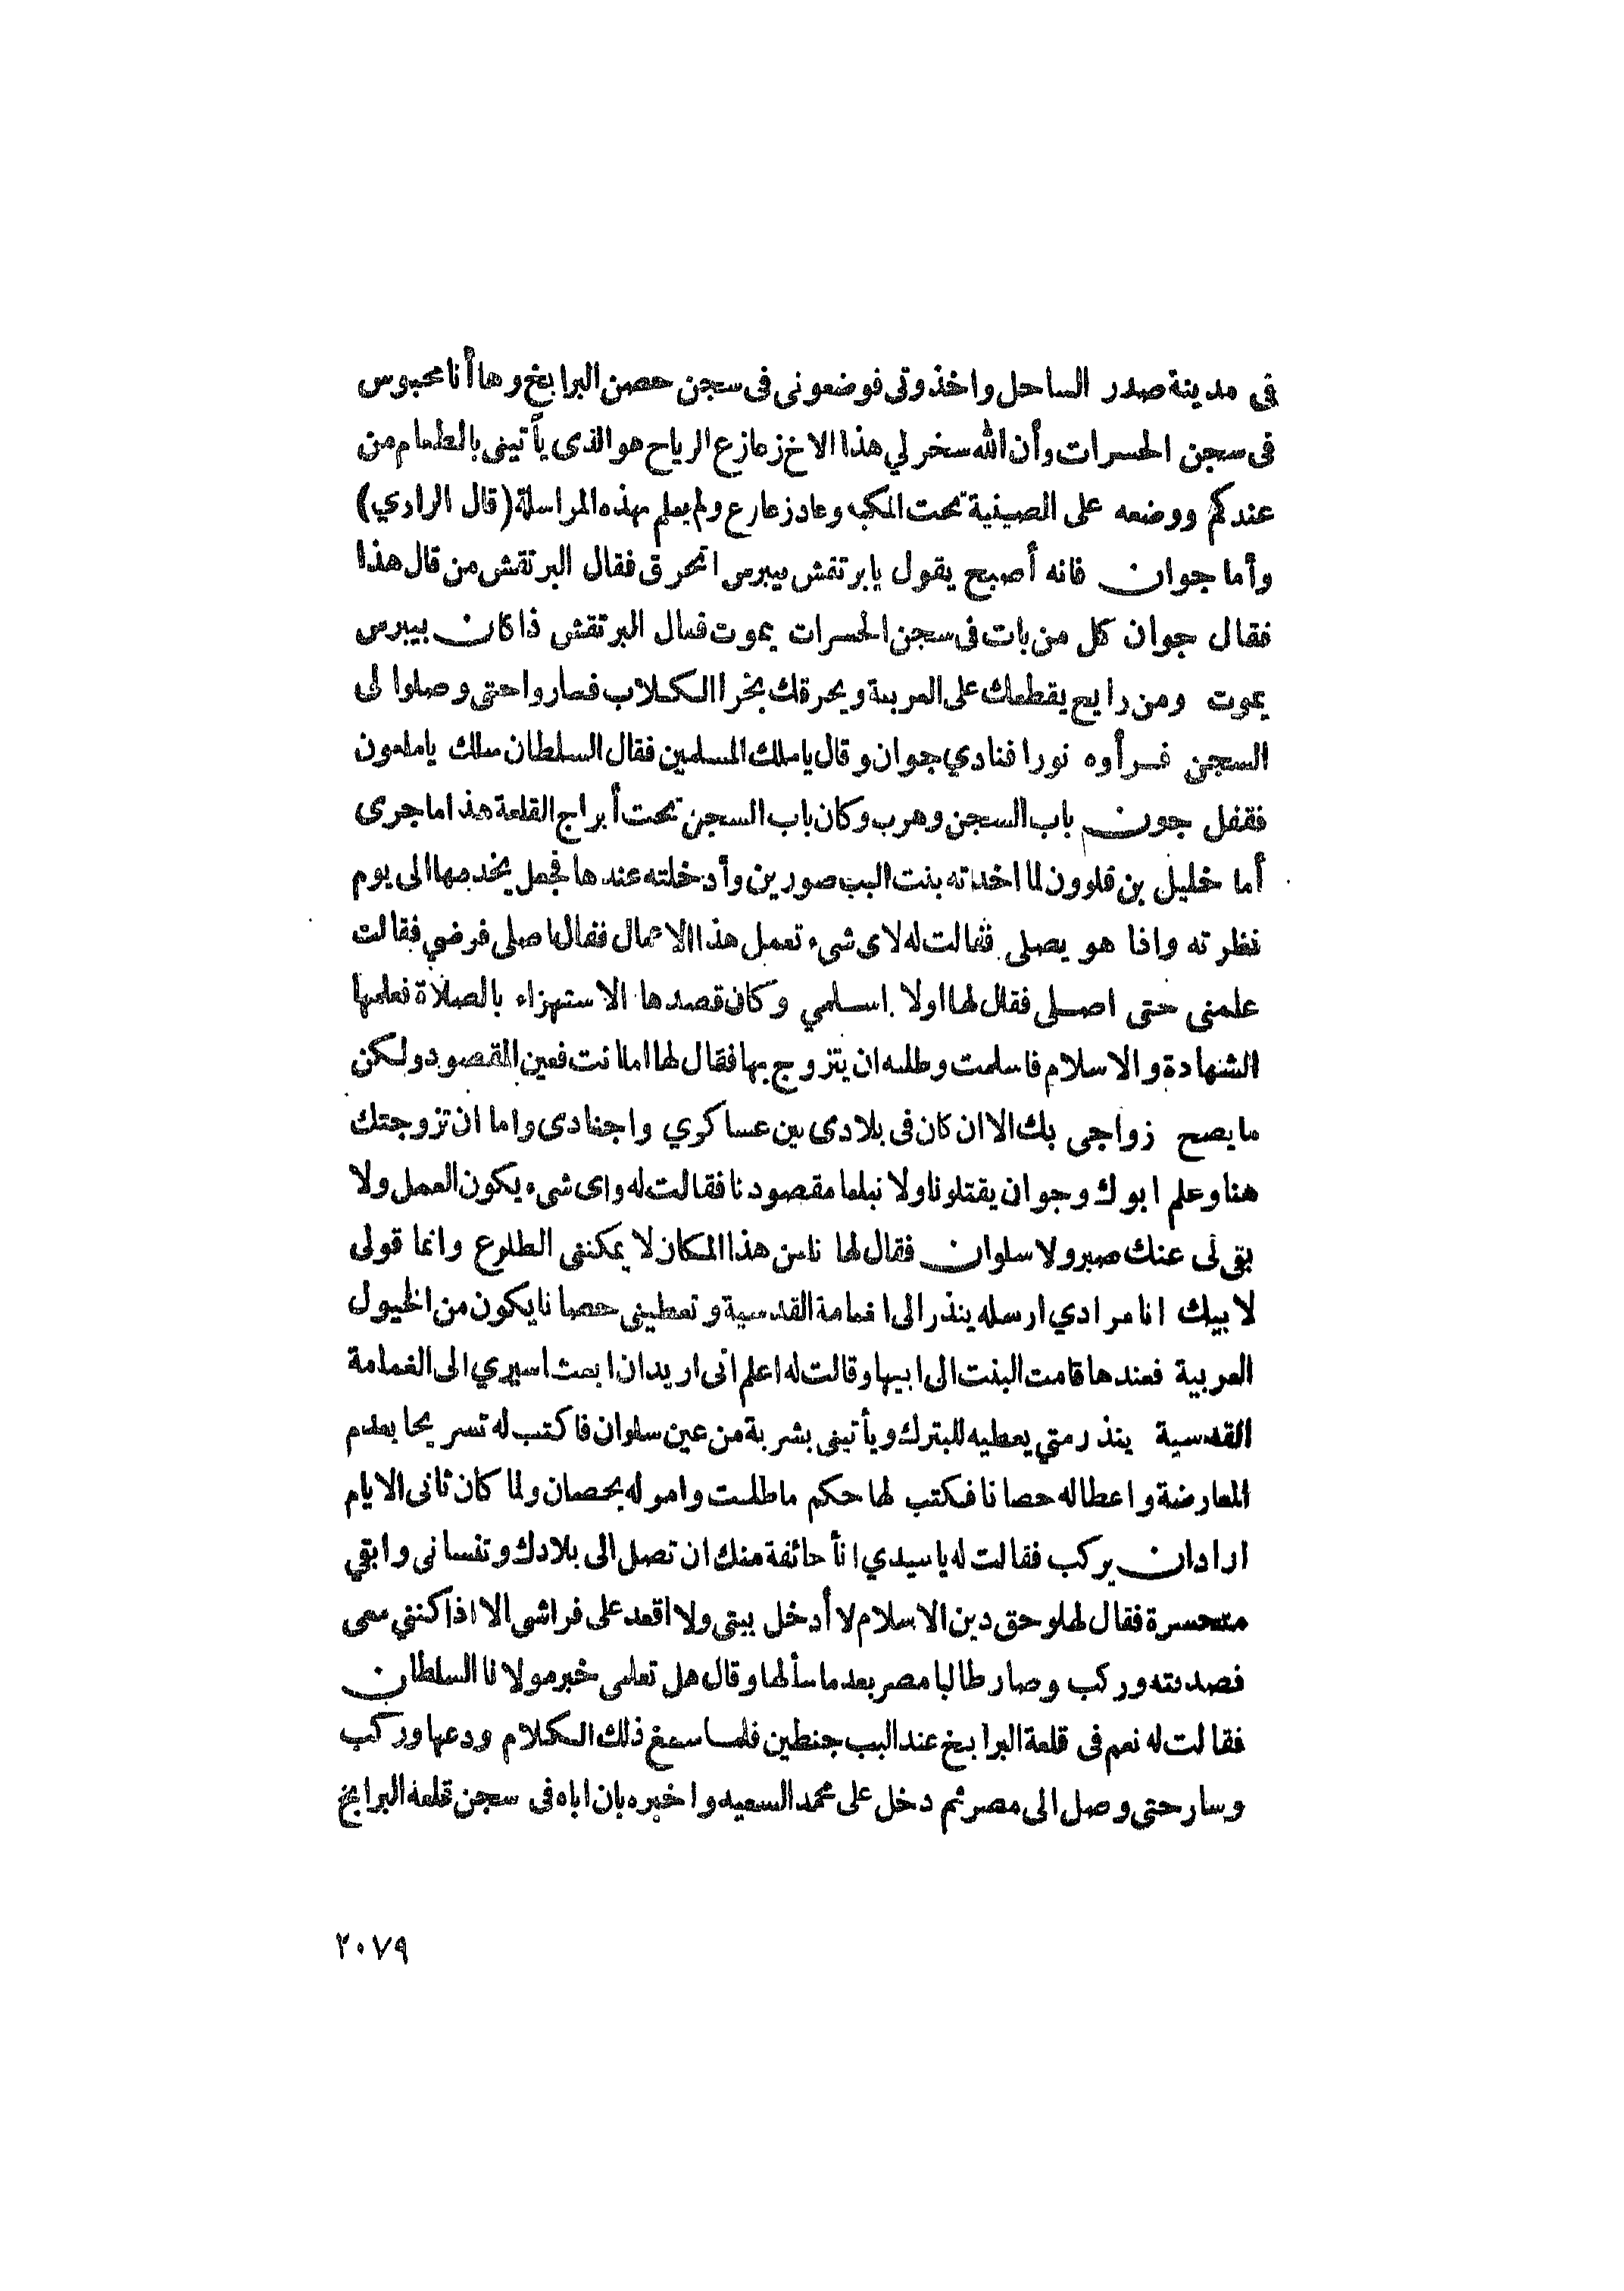 فى مدينة صدر الساحل واخذوتى فوضعونى فى سجن حصن البرابغ وها أنا محبوس
فى سجن الحسرات وأن الله سخر لي هذا الاخ زعازع الرياح هو الذى يأتينى بالطعام من
عندكم ووضعه على الصينية تحت المكبه وعاد زعارع ولم يعلم بهذه المراسلة (قال الرادي)
وأما جوان فانه أصبح يقول يابرتقش بيبرس انحرق فقال البرتقش من قال هذا
فقال جوان كل من بات فى سجن الحسرات يموت فقال البرتقش ذا كان بيبرس
يموت ومن رايح يقطعك على العربية ويحرقك بخرا الكلاب فصاروا حتى وصلوا لى
السجن فرأوه نورا فنادي جوان وقال ياملك المسلمين فقال السلطان سلك ياملعون
فقفل جون باب السجن وهرب وكان باب السجن تحت أبراج القلعة هذا ماجرى
أما خليل بن قلوون لما اخذته بنت البب صورين وأدخلته عندها فجعل يخدمها الى يوم
نظرته واذا هو يصلى فقالت له لاى شىء تعمل هذا الاعمال فقال اصلى فرضي فقالت
علمنى حتى اصلى فقال لها اولا اسلمي وكان قصدها الاستهزاء بالصلاة فعلمها
الشهادة والاسلام فاسلمت وطلبه ان يتزوج بها فقال لها اما انت فعين المقصود ولكن
مايصح زواجى بك الا ان كان فى بلادى بين عساكري واجنادى واما ان تزوجتك
هنا وعلم ابوك وجوان يقتلونا ولا نبلعا مقصودنا فقالت له واى شىء يكون العمل ولا
بقى لى عنك صبر ولا سلوان فقال لها نامن هذا المكان لا يمكننى الطلوع وانما قولى
لابيك انا مرادي ارسله ينذر الى اغمامة القدسية وتعطينى حصانا يكون من الخيول
العربية فعندها قامت البنت الى ابيها وقالت له اعلم انى اريد ان ابعث اسيري الى الغمامة
القدسية ينذر متي يعطيه للبترك ويأتينى بشربة من عين سلوان فاكتب له تسريحا بعدم
المعارضة واعطاله حصانا فكتب لها حكم ماطلبت وامر له بحصان ولما كان ثانى الايام
ارادان يركب فقالت له ياسيدي انأ حائفة منك ان تصل الى بلادك وتفسانى وابقي
متحسرة فقال لهاو حق دين الاسلام لا أدخل بيتى ولا اقعد على فراشى الا اذا كنتي معى
فصدقته وركب وصار طالبا مصر بعد ماسألها وقال هل تعلمى خبر مولانا السلطان
فقالت له نعم فى قلعة البرابغ عند البب جنطين فلما سمغ ذلك الكلام ودعها وركب
وسار حتى وصل الى مصر ثم دخل على محمد السعيه واخبره بان اباه فى سجن قلعة البرابخ
٢٠٧٩